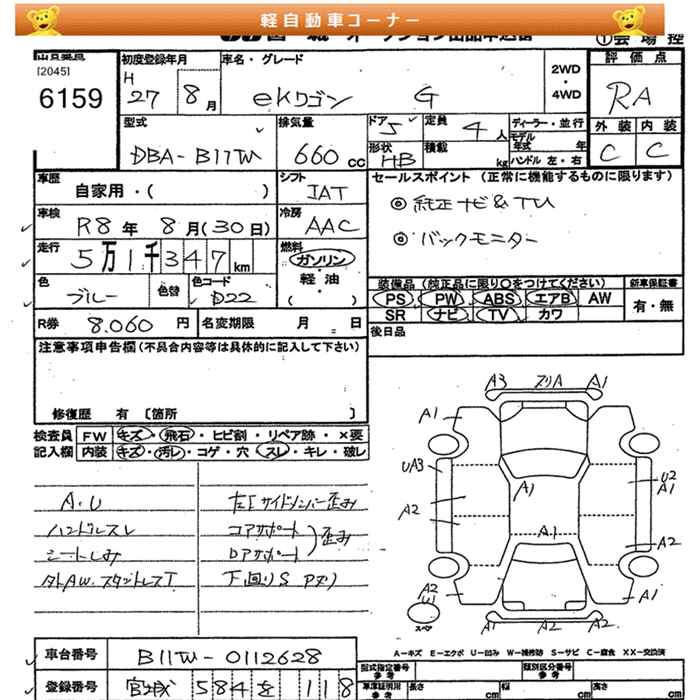 軽自動車コーナー
① 会場控
[2045]
6159
初度登録年月
H 27 8月
車名・グレード
eKワゴン G
2WD・4WD
評価点
RA
外装 内装
C C
型式
DBA-B11W
排気量
660cc
ドア 5
形状 HB
定員 4人
積載 kg
ディーラー・並行
モデル年式 年
ハンドル 左・右
車歴
自家用・( )
シフト
IAT
セールスポイント (正常に機能するものに限ります)
◎ 純正ナビ&TV
◎ バックモニター
車検
R8年 8月(30日)
冷房
AAC
走行
5万1千347km
燃料
ガソリン・軽・油
( )
色
ブルー
色替
色コード
D22
装備品 (純正品に限り○をつけてください)
PS PW ABS エアB AW
SR ナビ TV カワ
新車保証書
有・無
R券 8.060円
名変期限 月 日
後日品
注意事項申告欄(不具合内容等は具体的に記入して下さい)
修復歴 有 〔箇所 〕
検査員記入欄
FW キズ・飛石・ヒビ割・リペア跡・×要
内装 キズ・汚レ・コゲ・穴・スレ・キレ・破レ
A・U
ハンドルスレ
シートしみ
左Fサイドメンバー歪み
コアサポート
Dアサポート
歪み
下回りS
A3 A1
A1
UA3
A2
A1
U2
A1
A1
A2
A2
U1
A1
A2 A2
スペア
A-キズ E-エクボ U-凹み W-補修跡 S-サビ C-腐食 XX-交換済
車台番号 B11W-0112628
登録番号 宮城 584 を 118
型式指定番号 参考
類別区分番号 参考
車庫証明用 参考
長さ cm 幅 cm 高さ cm